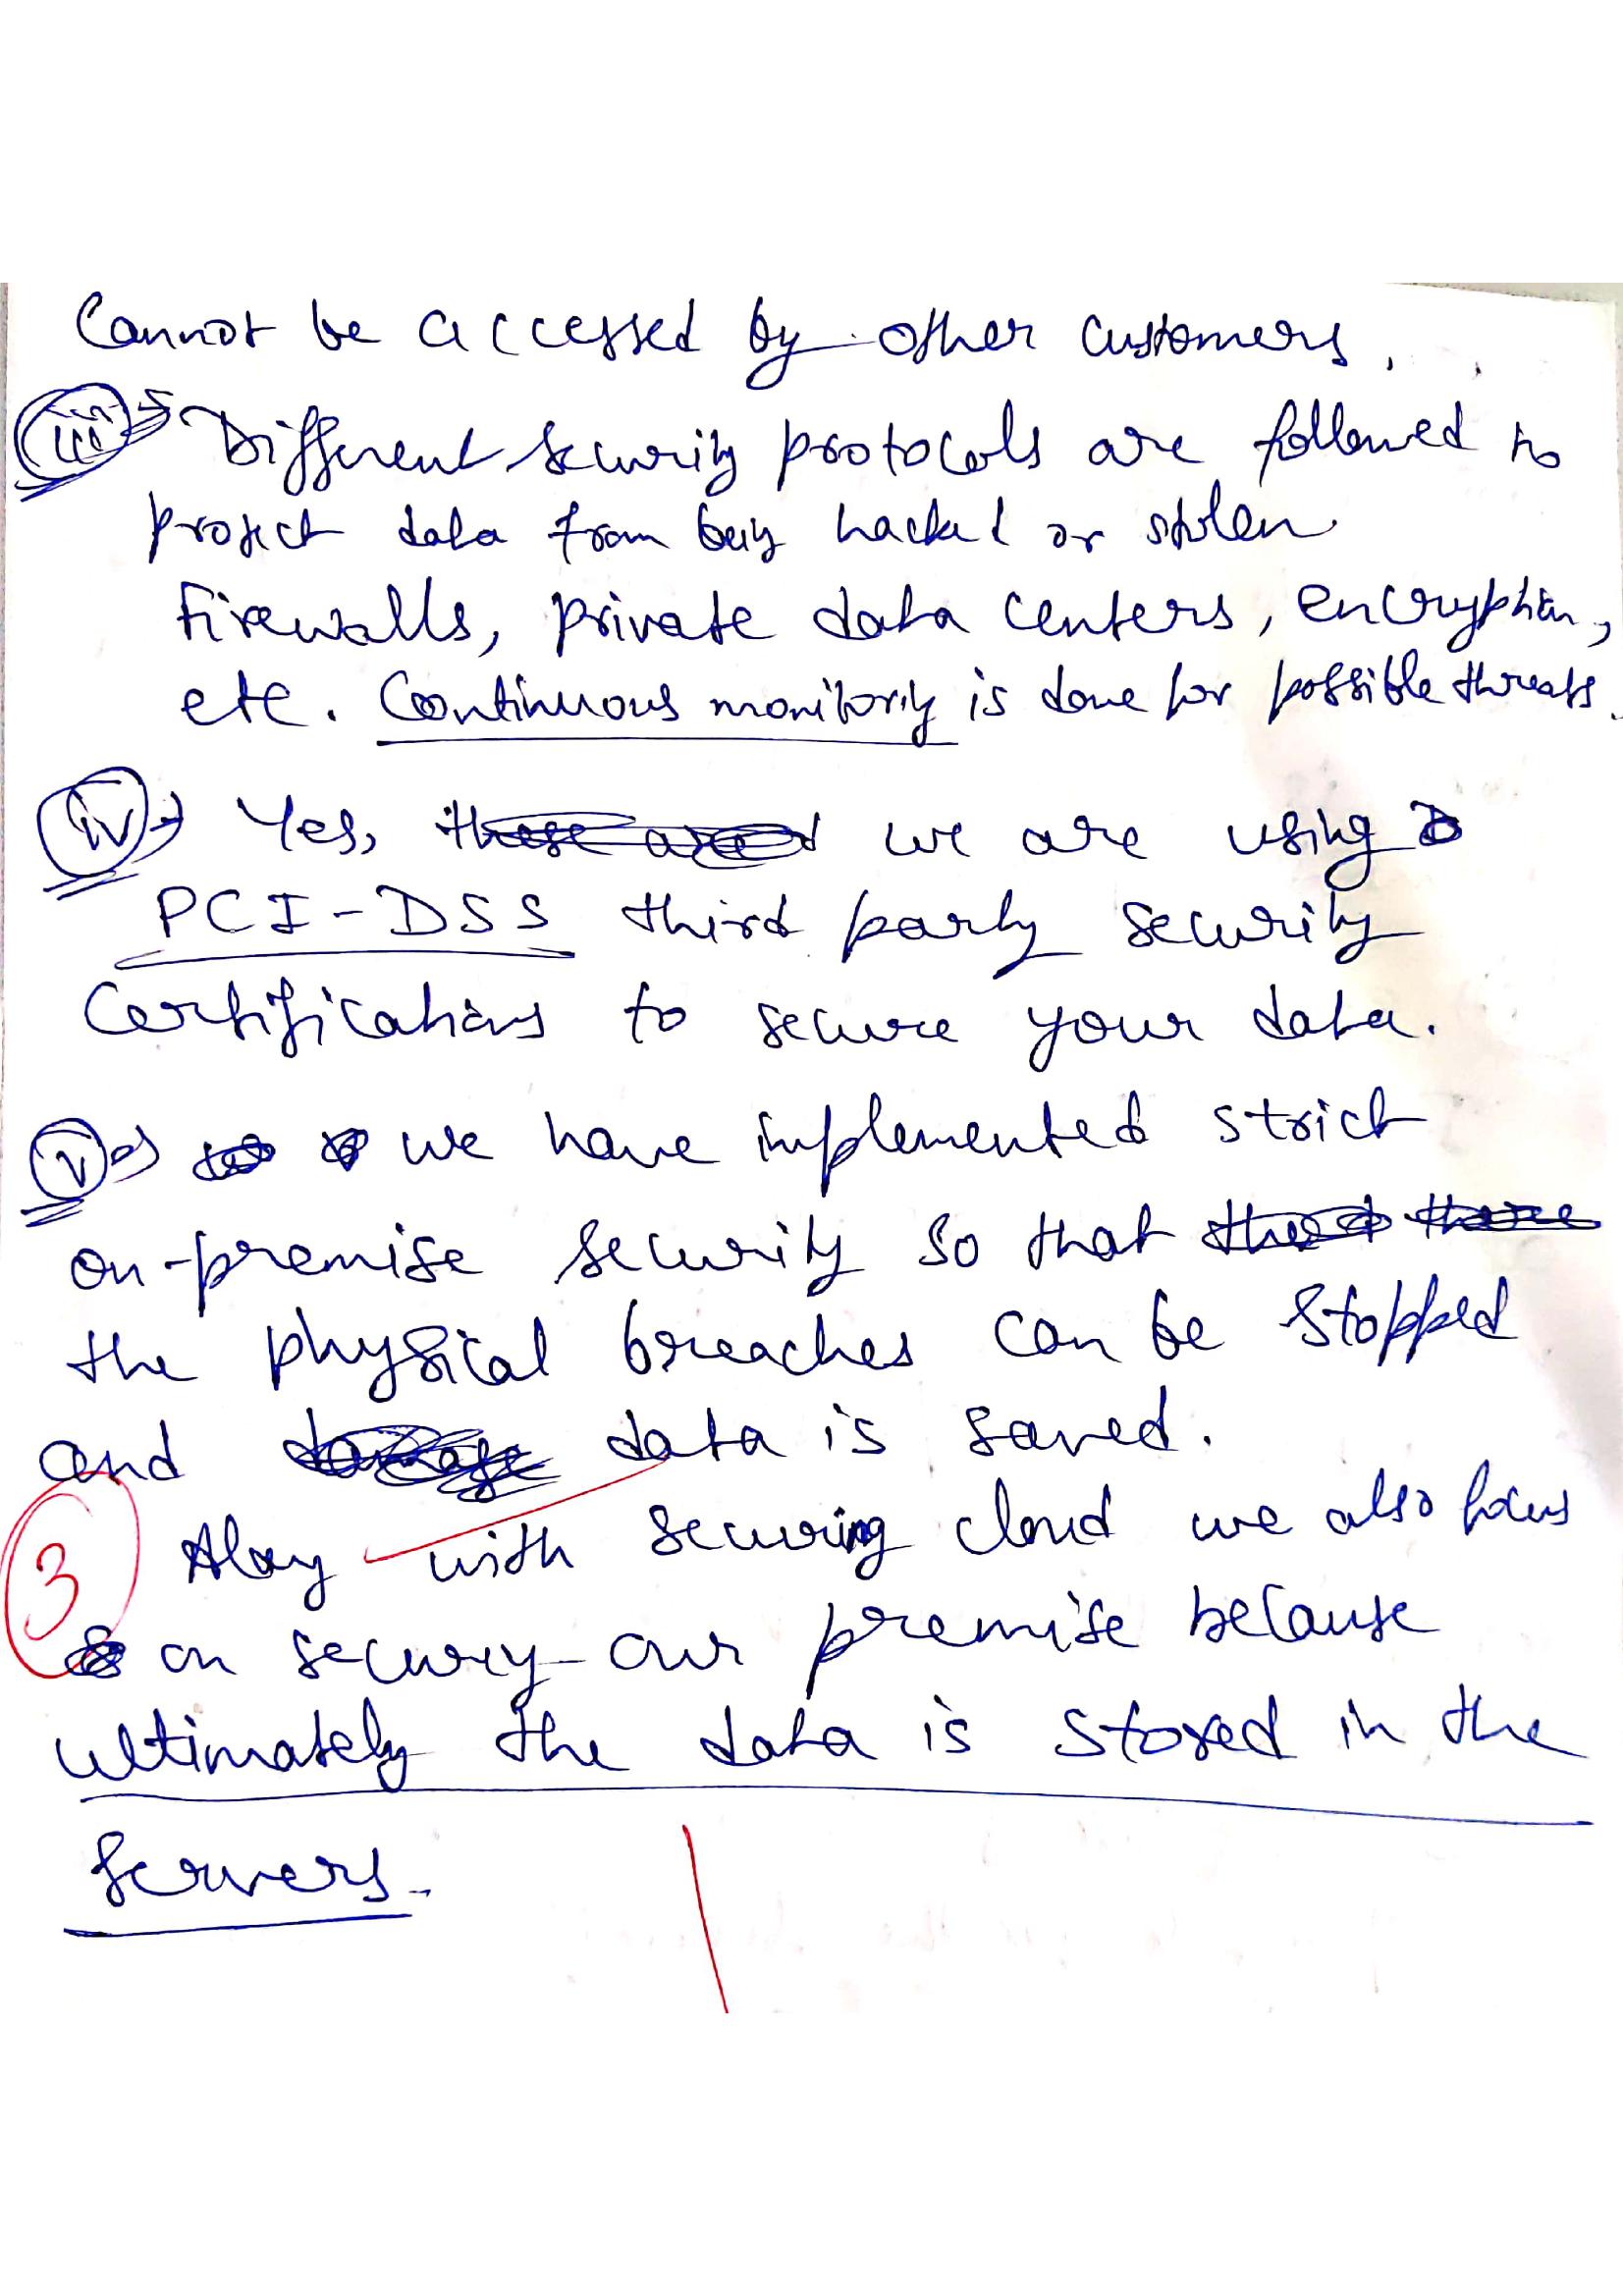 Cannot be accessed by other customers.
iii→ Different security protocols are followed to
protect data from being hacked or stolen
Firewalls, private data centers, encryption,
etc. Continuous monitoring is done for possible threats.
iv→ Yes, we are using
PCI-DSS third party security
Certifications to secure your data.
v→ we have implemented strict
on-premise security so that
the physical breaches can be stopped
and data is saved.
Along with securing cloud we also focus
3
on securing our premise because
ultimately the data is stored in the
servers.